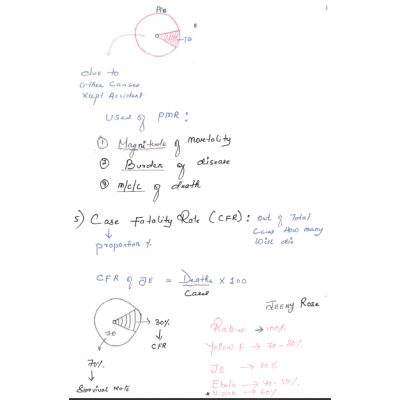 Pie
1
70
due to
Other Causes
Xept Accident
Uses of PMR:
① Magnitude of mortality
② Burden of disease
③ M/C/C of death
5) Case Fatality Rate (CFR): out of Total
Cases How many
Will die
proportion %
CFR of JE = Deaths × 100
Cases
JEENY Rose
70
30%
CFR
70%
Survival Rate
Rabies → 100%
Yellow F → 70-80%
JE → 30%
Ebola → 40-50%
→ 60%